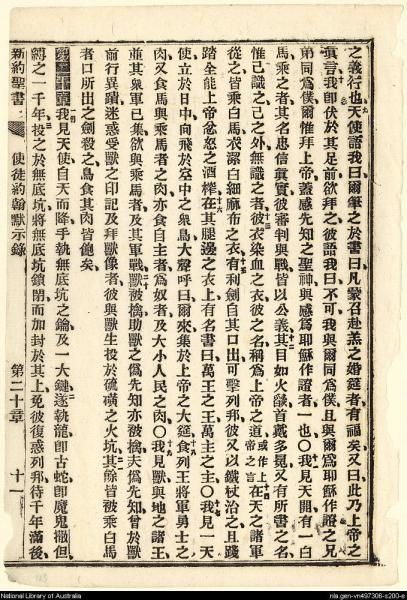 之義行也天使語我曰爾筆之於書曰凡蒙召赴羔之婚筵者有福矣又曰此乃上帝之
眞言我卽伏於其足前欲拜之彼語我曰不可我與爾同爲僕且與爾爲耶穌作證之兄
弟同爲僕爾惟拜上帝蓋感先知之聖神與感爲耶穌作證者一也〇我見天開有一白
馬乘之者其名忠信眞實彼審判與戰皆以公義其目如火燄首戴多冕又有所書之名
惟己識之己之外無識之者彼衣染血之衣彼之名稱爲上帝之道或作上帝之言在天之諸軍
從之皆乘白馬衣潔白細麻布之衣有利劍自其口出可擊列邦彼又以鐵杖治之且踐
踏全能上帝忿怒之酒榨在其腿邊之衣上有名書曰萬王之王萬主之主〇我見一天
使立於日中向飛於空中之衆鳥大聲呼曰爾來集於上帝之大筵食列王將軍勇士之
肉又食馬與乘馬者之肉亦食自主者爲奴者及大小人民之肉〇我見獸與地之諸王
並其衆軍已集欲與乘馬者及其軍戰獸被擒助獸之僞先知亦被擒夫僞先知曾於獸
前行異蹟迷惑受獸之印記及拜獸像者彼與獸生投於硫磺之火坑其餘皆被乘白馬
者口所出之劍殺之鳥食其肉皆飽矣
我見天使自天而降手執無底坑之鑰及一大鏈遂執龍卽古蛇卽魔鬼撒但
縛之一千年投之於無底坑將無底坑鎖閉而加封於其上免彼復惑列邦待千年滿後
新約聖書 使徒約翰默示錄 第二十章 十一
National Library of Australia
nla.gen-vn497306-s200-e